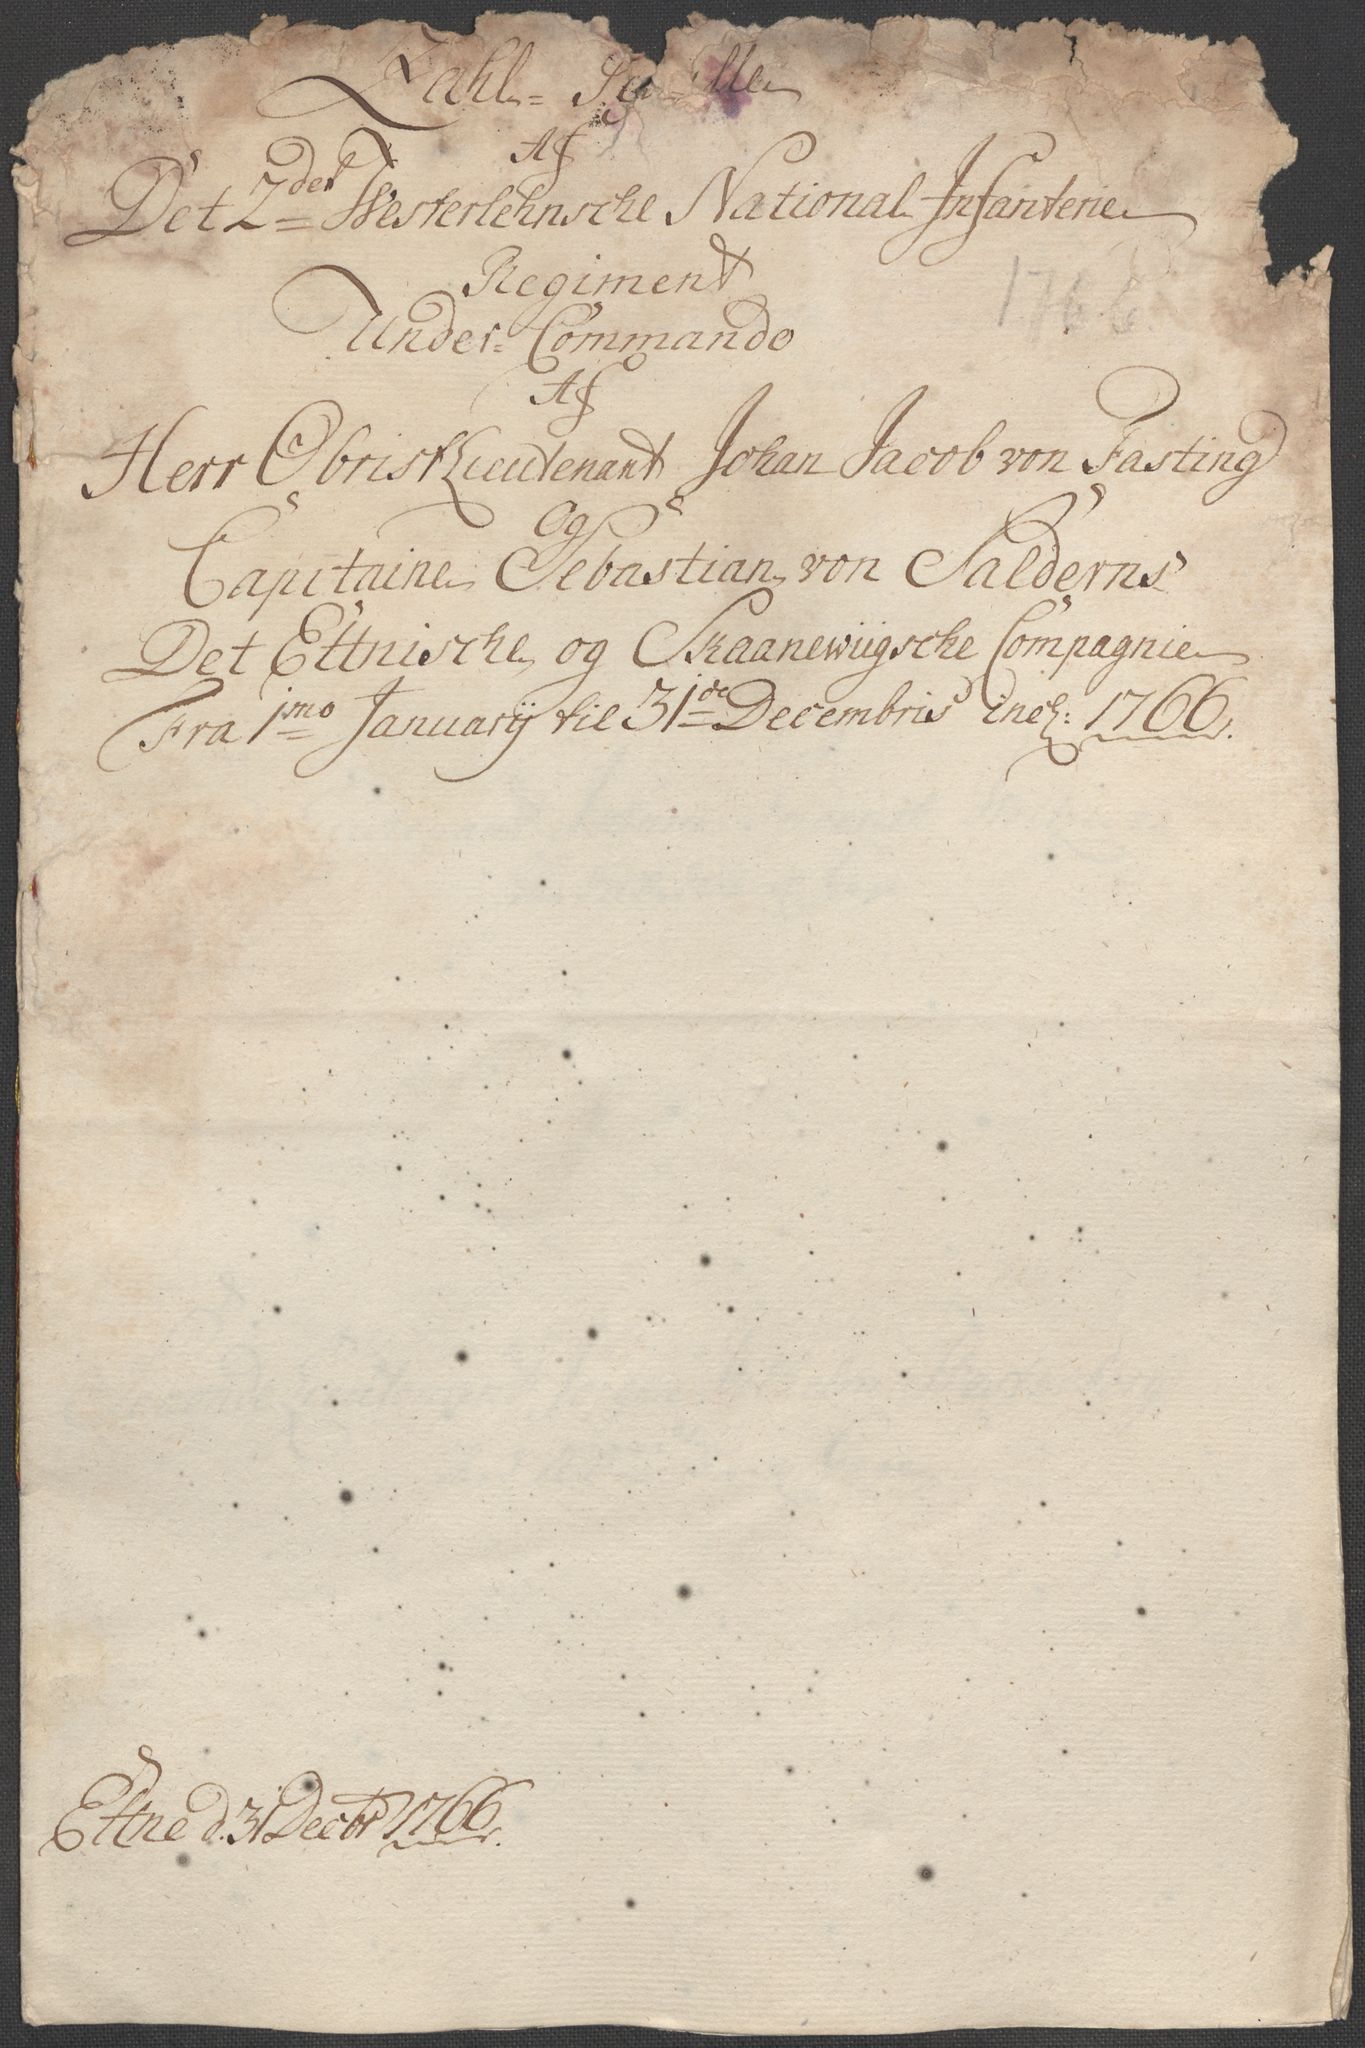 Zahl=
Af
Det 2den Westerlehnsche National Infanterie
Regiment
Under= Commando
Af
Herr Obristlieutenant Johan Jacob von Fasting
Og
Capitaine Sebastian von Salderns
Det Ettnische og Skaanewiigsche Compagnie
Fra 1mo Januarij til 31de Decembris incl: 1766.
1766
Ettne d. 31 Decbr 1766.